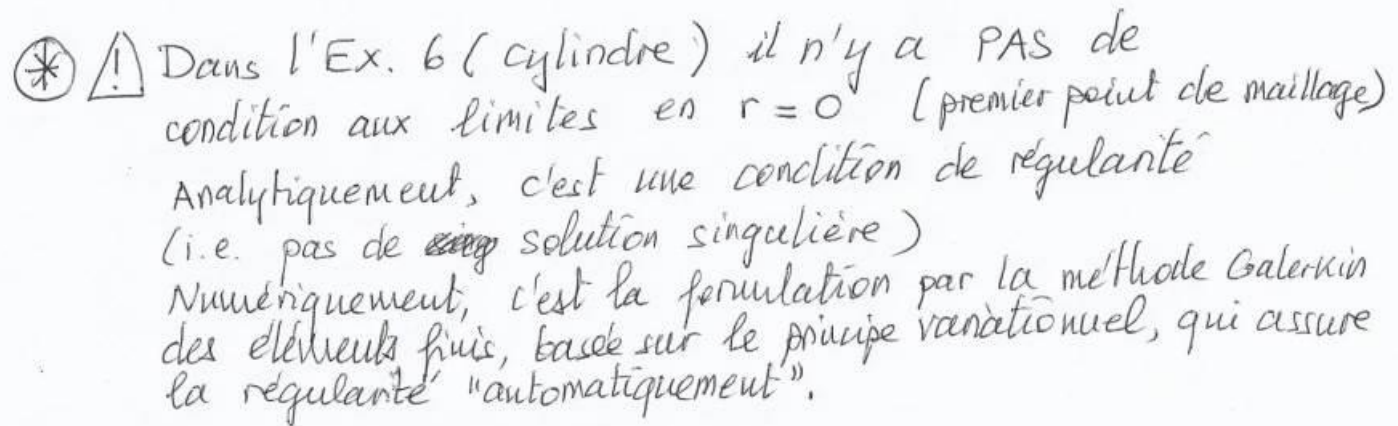 * ! Dans l'Ex. 6 (cylindre) il n'y a PAS de
condition aux limites en r = 0 (premier point de maillage)
Analytiquement, c'est une condition de régularité
(i.e. pas de solution singulière)
Numériquement, c'est la formulation par la méthode Galerkin
des éléments finis, basée sur le principe variationnel, qui assure
la régularité "automatiquement".